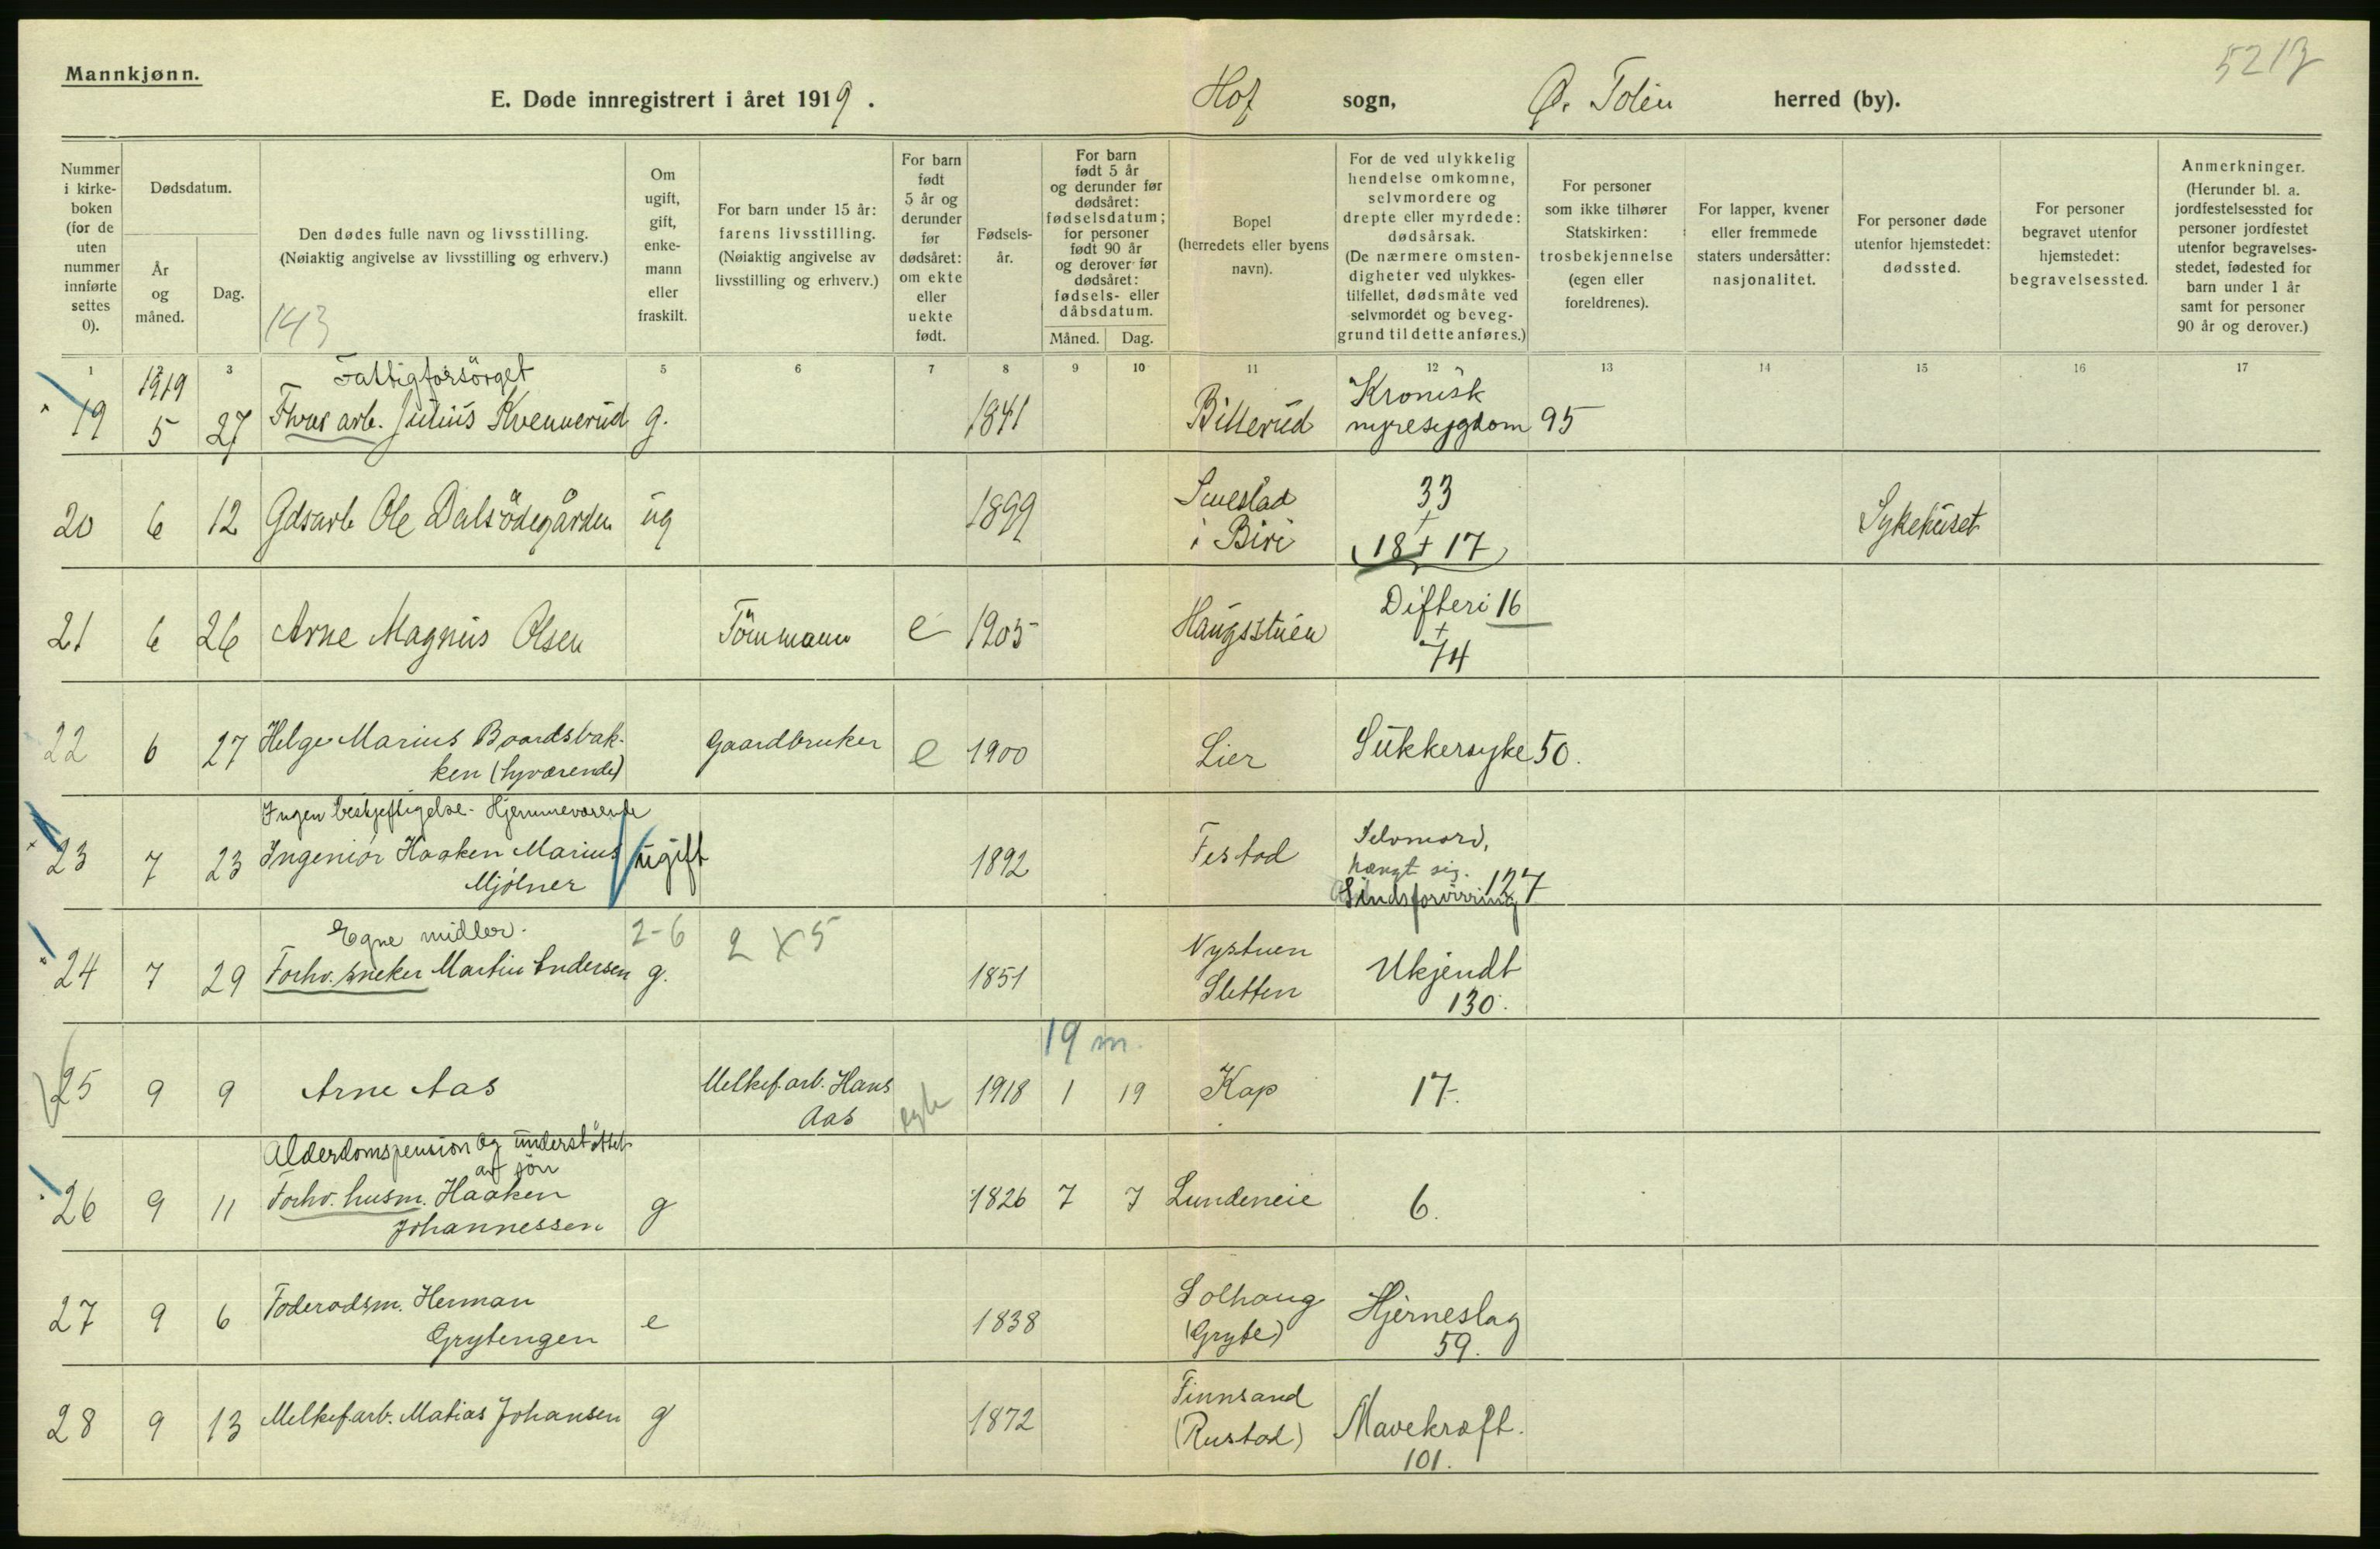 5213
Mannkjønn.
E. Døde innregistrert i året 1919.
Hof sogn, Ø. Toten herred (by).
Nummer i kirke-boken (for de uten nummer innførte settes 0).
Dødsdatum.
År og måned.
Dag.
Den dødes fulle navn og livsstilling.
(Nøiaktig angivelse av livsstilling og erhverv.)
143
Om ugift, gift, enke-mann eller fraskilt.
For barn under 15 år: farens livsstilling.
(Nøiaktig angivelse av livsstilling og erhverv.)
For barn født 5 år og derunder før dødsåret: om ekte eller uekte født.
Fødsels-år.
For barn født 5 år og derunder før dødsåret: fødselsdatum; for personer født 90 år og derover før dødsåret: fødsels- eller dåbsdatum.
Måned. Dag.
Bopel (herredets eller byens navn).
For de ved ulykkelig hendelse omkomne, selvmordere og drepte eller myrdede: dødsårsak.
(De nærmere omsten-digheter ved ulykkes-tilfellet, dødsmåte ved selvmordet og beveg-grund til dette anføres.)
For personer som ikke tilhører Statskirken: trosbekjennelse (egen eller foreldrenes).
For lapper, kvener eller fremmede staters undersåtter: nasjonalitet.
For personer døde utenfor hjemstedet: dødssted.
For personer begravet utenfor hjemstedet: begravelsessted.
Anmerkninger.
(Herunder bl. a. jordfestelsessted for personer jordfestet utenfor begravelses-stedet, fødested for barn under 1 år samt for personer 90 år og derover.)
1 3 5 6 7 8 9 10 11 12 13 14 15 16 17
1919 Fattigforsörget Kronisk
19 5 27 arb. Julius Kvennerud g. 1841 Billerud nyresygdom 95
20 6 12 Gdsarb Ole Dalsödegården ug 1899 i Biri 33 + (18 + 17) Sykehuset
21 6 26 Arne Magnus Olsen Tömmann e 1905 Haugsstuen Difteri 16 + 74
22 6 27 Helge Marius Baardsbak-
ken Gaardbruker e 1900 Lier Sukkersyke 50.
Ingen beskjeftigelse - Hjemmeværende
23 7 23 Ingeniör Haaken Marius
Mjölner ugift 1892 Festad Selvmord,
hængt sig.
Sindsforvirring 127
Egne midler. 2-6 2 x 5
24 7 29 Forhv. sneker Martin Andersen g. 1851 Nystuen
Sletten Ukjendt
130.
19 m.
25 9 9 Arne Aas Melkef.arb. Hans
Aas egte 1918 1 19 Kap 17.
Alderdomspension og understöttet
av sön
26 9 11 Forhv. husm. Haaken
Johannessen g 1826 7 7 Lundeneie 6.
27 9 6 Föderadsm. Herman
Grytengen e 1838 Solhaug
(Gryte) Hjerneslag
59.
28 9 13 Melkef.arb. Matias Johansen g 1872 Finnsand
(Rustad) Mavekræft.
101.